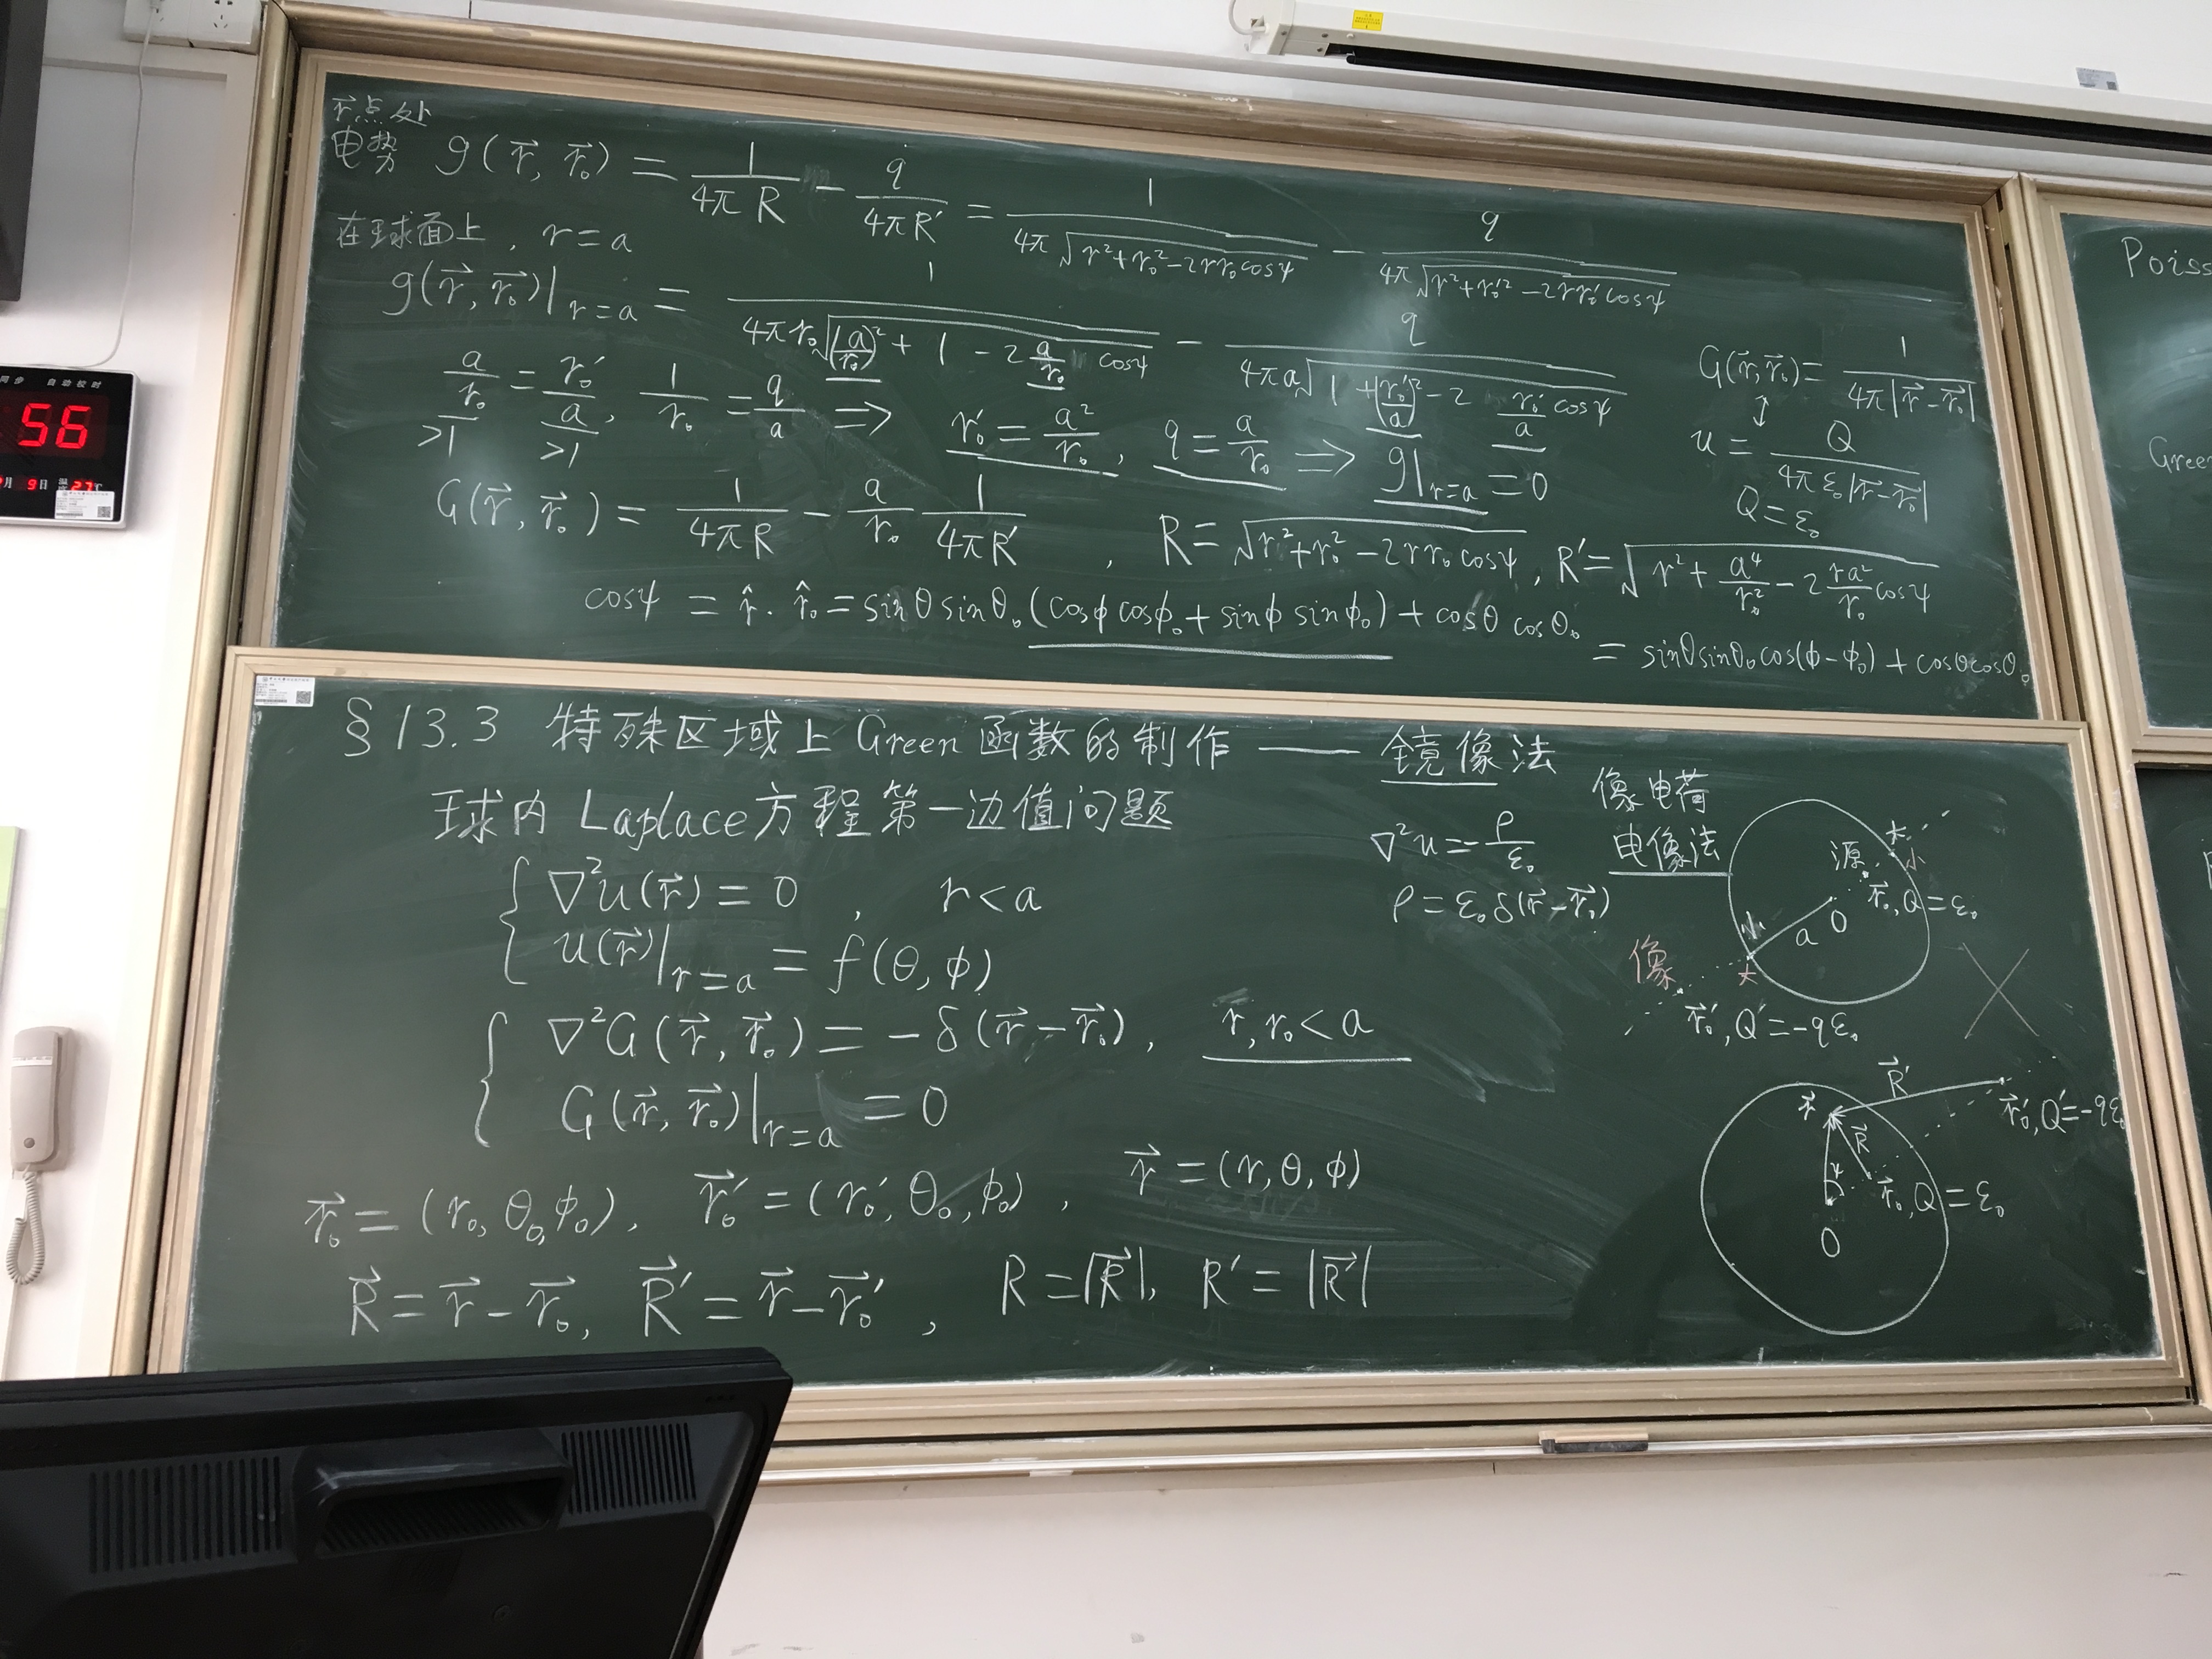 r⃗点处
电势 g(r⃗, r⃗₀) = 1/(4πR) − q/(4πR′) = 1/(4π√(r²+r₀²−2rr₀cosψ)) − q/(4π√(r²+r₀′²−2rr₀′cosψ))
在球面上, r = a
g(r⃗, r⃗₀)|r=a = 1/(4πr₀√((a/r₀)² + 1 − 2 a/r₀ cosψ)) − q/(4πa√(1 + (r₀′/a)² − 2 r₀′/a cosψ))
a/r₀ = r₀′/a, 1/r₀ = q/a ⇒ r₀′ = a²/r₀, q = a/r₀ ⇒ g|r=a = 0
>1 >1
G(r⃗, r⃗₀) = 1/(4πR) − a/r₀ 1/(4πR′), R = √(r²+r₀²−2rr₀cosψ), R′ = √(r² + a⁴/r₀² − 2 ra²/r₀ cosψ)
cosψ = r̂·r̂₀ = sinθ sinθ₀(cosϕ cosϕ₀ + sinϕ sinϕ₀) + cosθ cosθ₀
= sinθsinθ₀cos(ϕ−ϕ₀) + cosθcosθ₀
G(r⃗,r⃗₀) = 1/(4π|r⃗−r⃗₀|)
↕
u = Q/(4πε₀|r⃗−r⃗₀|)
Q = ε₀
§13.3 特殊区域上Green函数的制作 —— 镜像法
球内Laplace方程第一边值问题
∇²u(r⃗) = 0, r < a
u(r⃗)|r=a = f(θ, ϕ)
∇²G(r⃗, r⃗₀) = −δ(r⃗−r⃗₀), r, r₀ < a
G(r⃗, r⃗₀)|r=a = 0
r⃗₀ = (r₀, θ₀, ϕ₀), r⃗₀′ = (r₀′, θ₀, ϕ₀), r⃗ = (r, θ, ϕ)
R⃗ = r⃗ − r⃗₀, R⃗′ = r⃗ − r⃗₀′, R = |R⃗|, R′ = |R⃗′|
∇²u = −ρ/ε₀
ρ = ε₀δ(r⃗−r⃗₀)
像电荷
电像法
大
小
源
r⃗₀, Q = ε₀
O
a
小
大
像
r⃗₀′, Q′ = −qε₀
R⃗′
r⃗
r⃗₀′, Q′ = −qε₀
R⃗
ψ
r⃗₀, Q = ε₀
O
Poiss
Green
56
自动校时
月 9日 温度 27℃